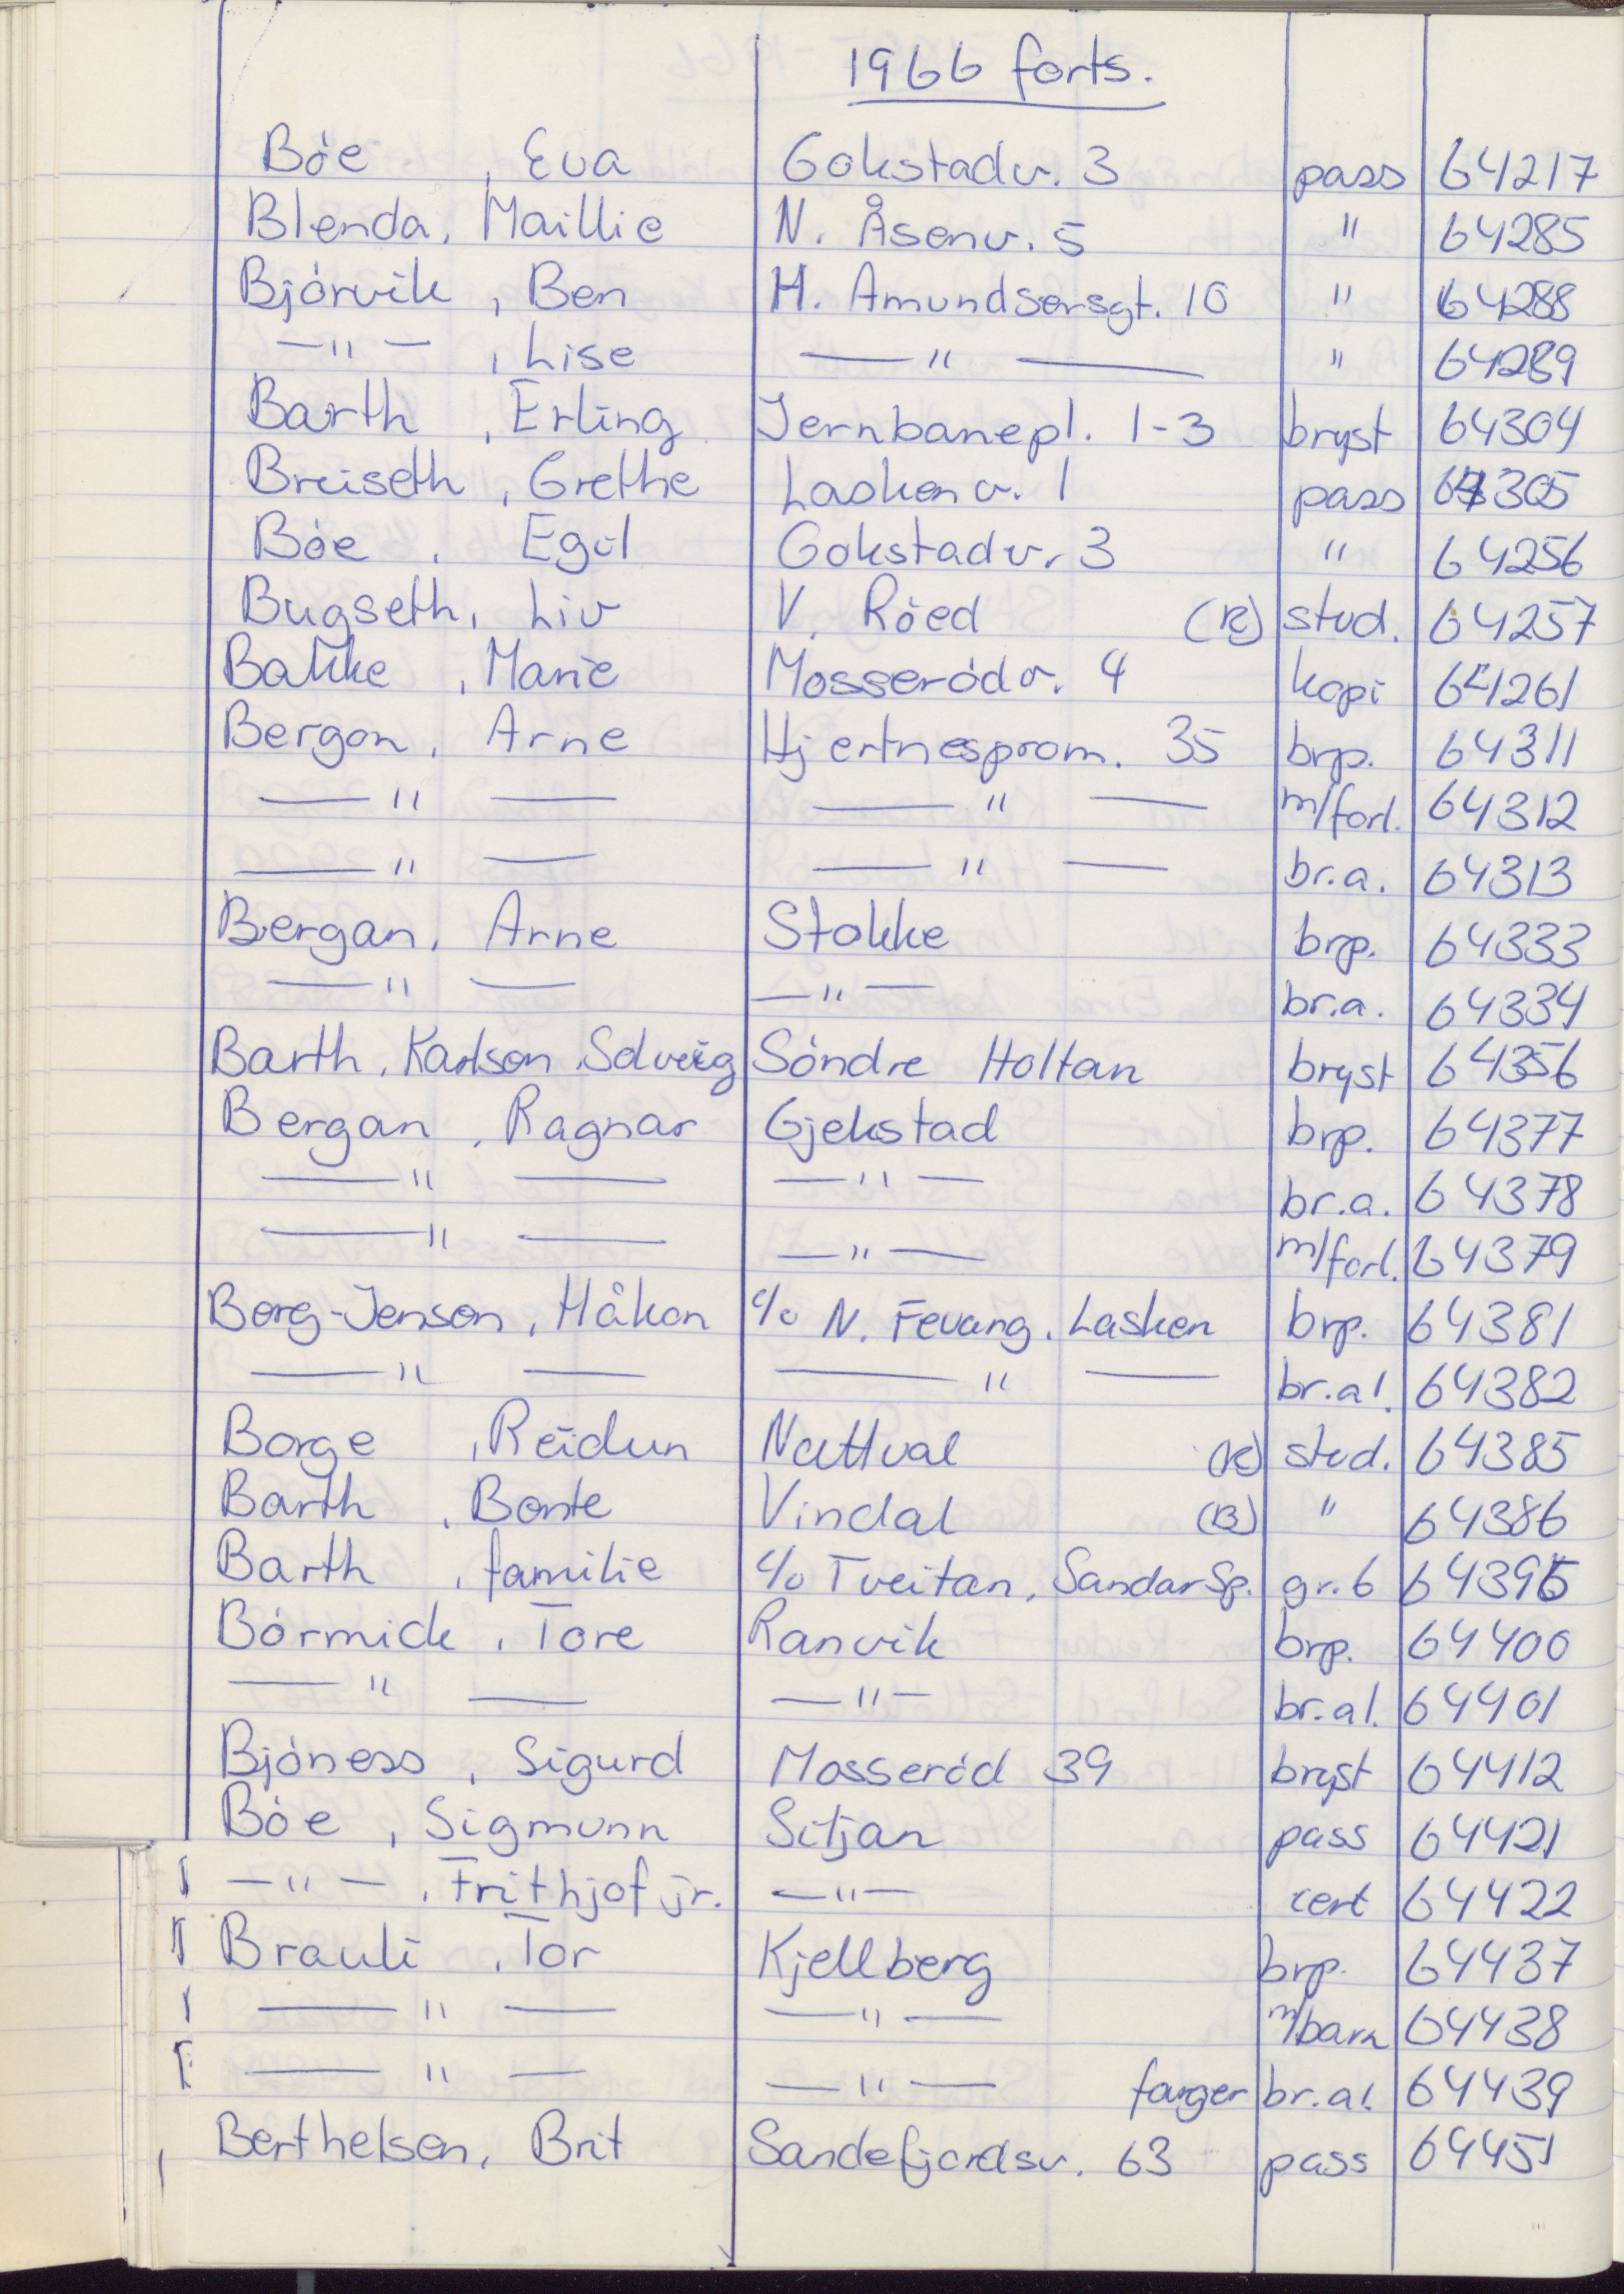 1966 forts.
Bøe , Eva Gokstadv. 3 pass 64217
Blenda, Maillie N. Åsenv. 5 " 64285
Bjørvik , Ben H. Amundsensgt. 10 " 64288
—"— , Lise —"— " 64289
Barth , Erling Jernbanepl. 1-3 bryst 64304
Breiseth , Grethe Laskenv. 1 pass 64305
Bøe , Egil Gokstadv. 3 " 64256
Bugseth, Liv V. Røed (K) stud. 64257
Bakke , Marie Mosserødv. 4 kopi 64261
Bergan, Arne Hjertnesprom. 35 brp. 64311
—"— —"— m/forl. 64312
—"— —"— br.a. 64313
Bergan, Arne Stokke brp. 64333
—"— —"— br.a. 64334
Barth, Karlsen Solveig Søndre Holtan bryst 64356
Bergan , Ragnar Gjekstad brp. 64377
—"— —"— br.a. 64378
—"— —"— m/forl. 64379
Berg-Jensen, Håkon c/o N. Fevang, Lasken brp. 64381
—"— —"— br.al. 64382
Borge , Reidun Nattval (K) stud. 64385
Barth , Bente Vindal (B) " 64386
Barth , familie c/o Tveitan, Sandar Sp. gr. 6 64395
Børmick , Tore Ranvik brp. 64400
—"— —"— br.al. 64401
Bjøness , Sigurd Mosserød 39 bryst 64412
Bøe , Sigmunn Sitjan pass 64421
—"— , Frithjof jr. —"— cert 64422
Brauli , Tor Kjellberg brp. 64437
—"— —"— m/barn 64438
—"— —"— farger br.al. 64439
Berthelsen, Brit Sandefjordsv. 63 pass 64451